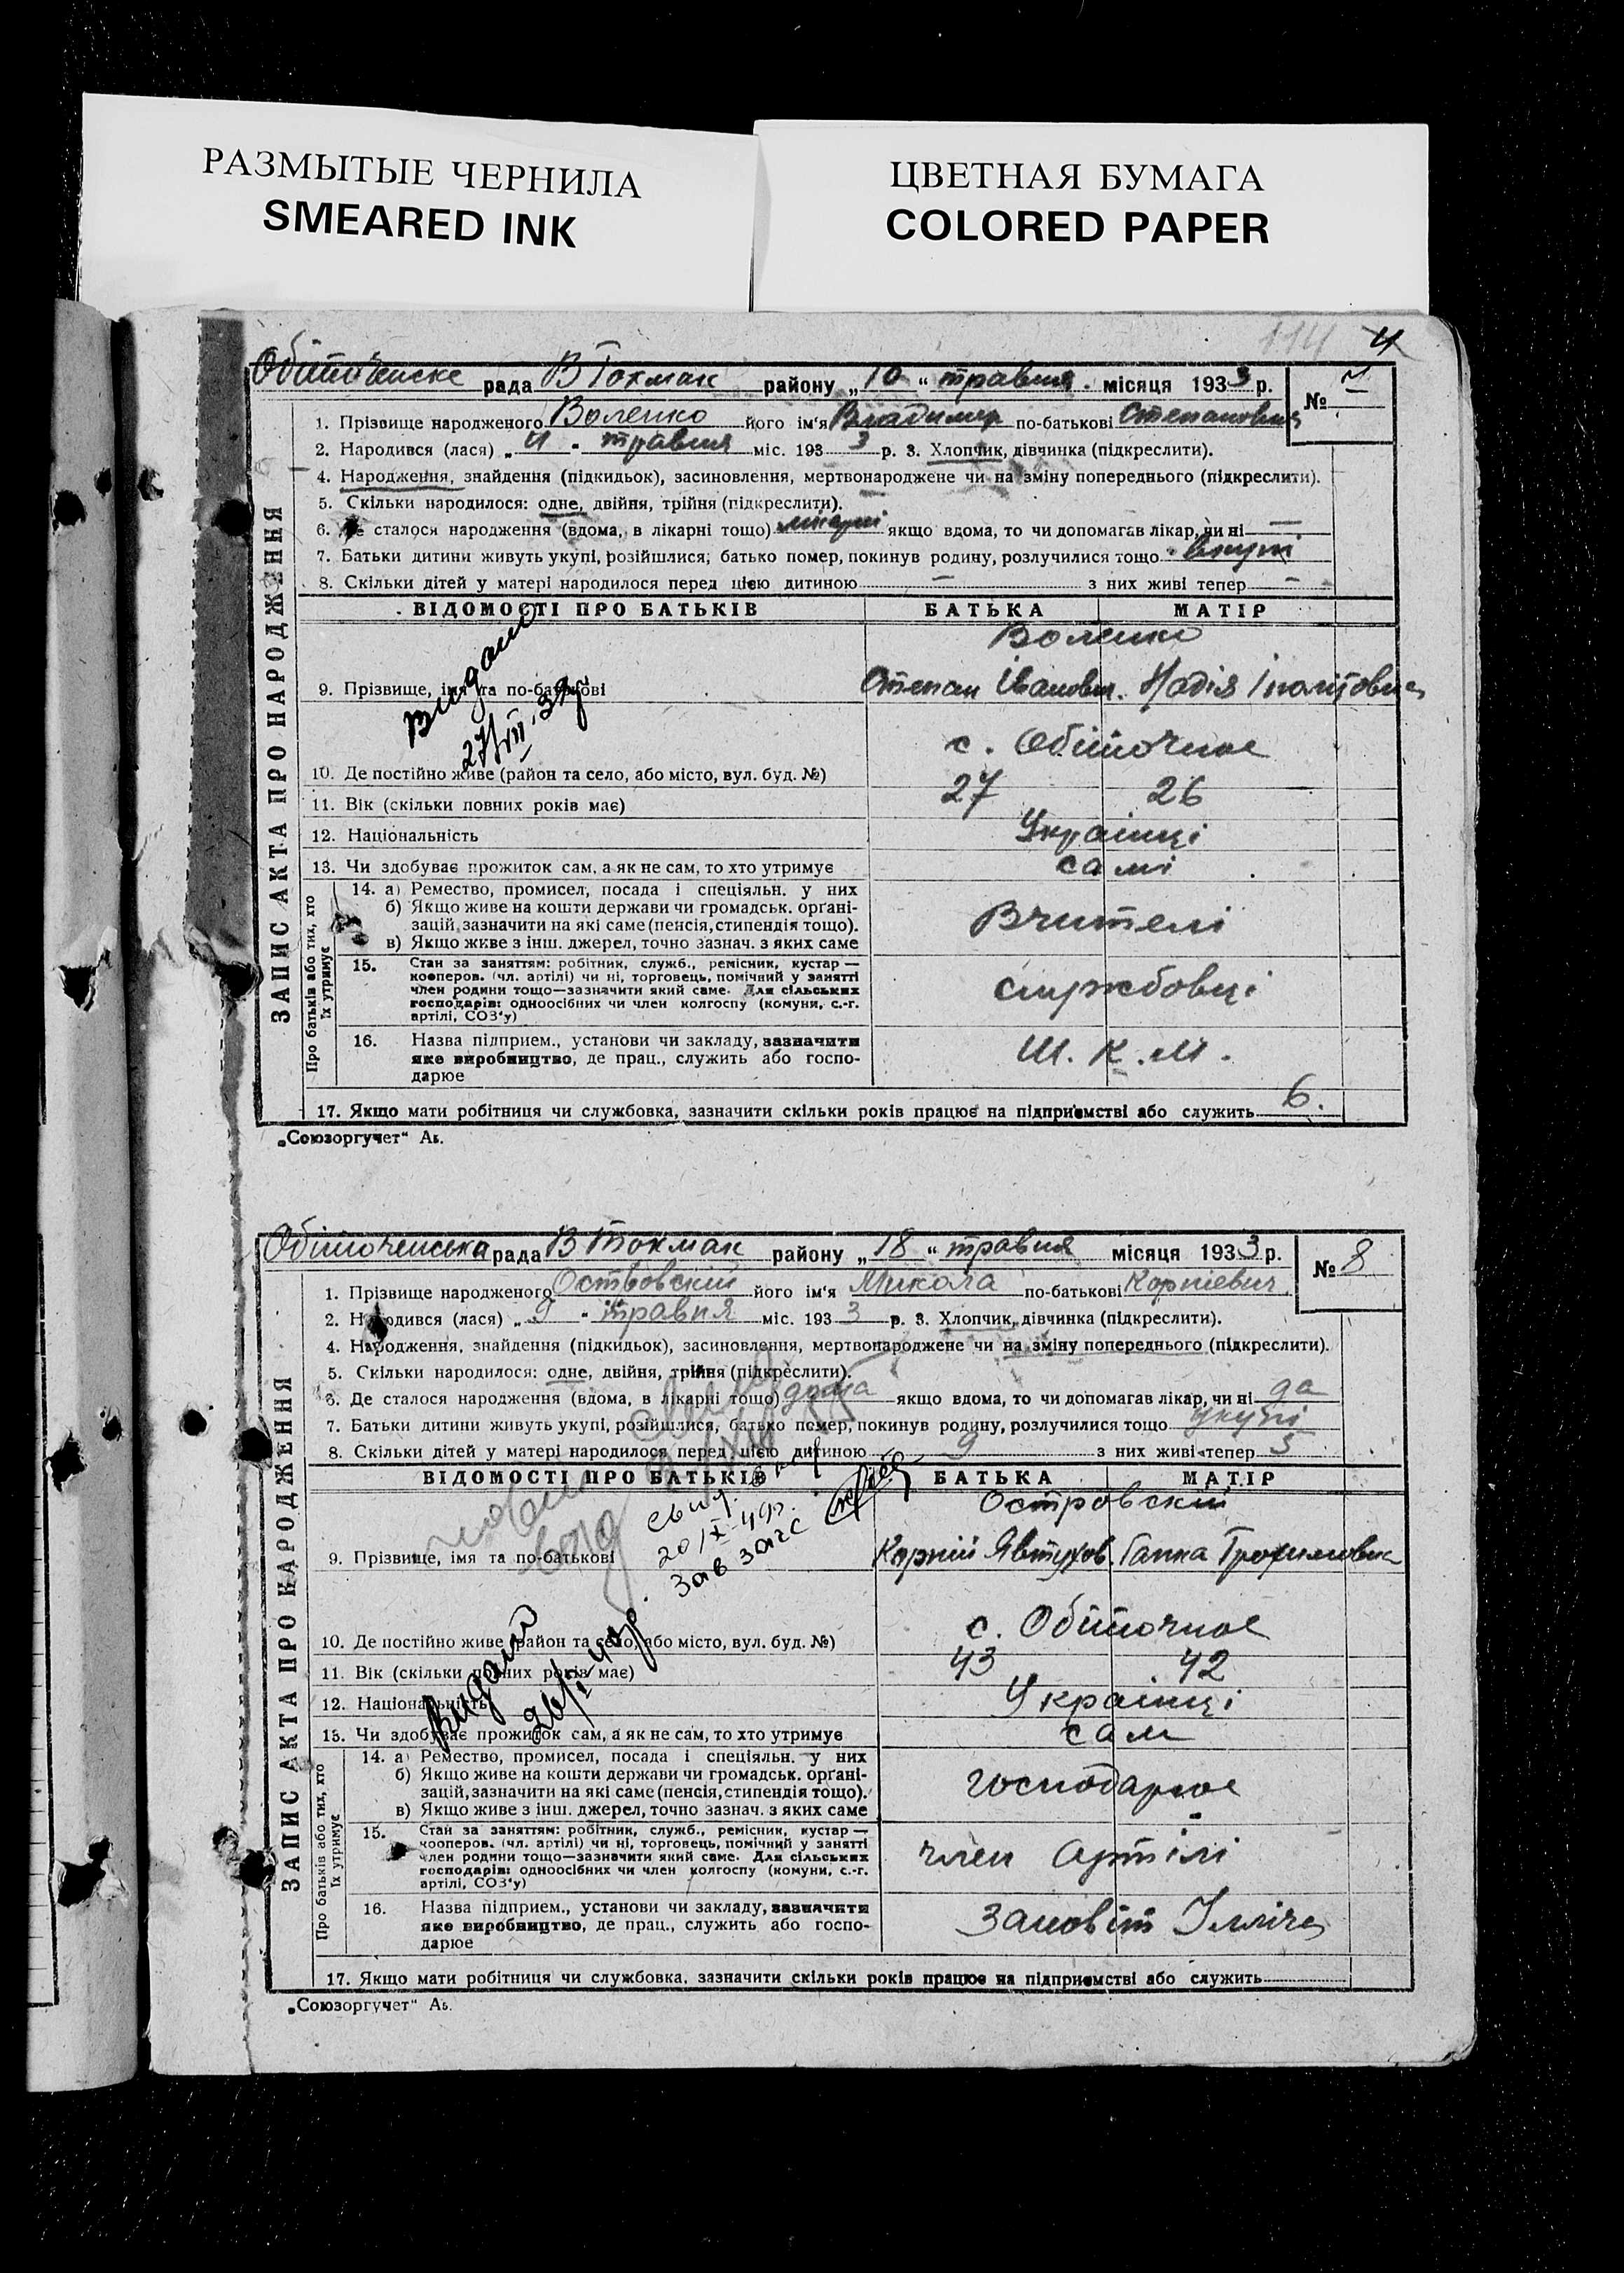 РАЗМЫТЫЕ ЧЕРНИЛА
SMEARED INK
ЦВЕТНАЯ БУМАГА
COLORED PAPER
114 4
Обіточенске рада В Токмак району „10“ травня місяця 1933 р. №
1. Прізвище народженого Воленко його ім'я Владимир по-батькові Степанович
2. Народився (лася) „4“ травня міс. 1933 р. 3. Хлопчик, дівчинка (підкреслити).
4. Народження, знайдення (підкидьок), засиновлення, мертвонароджене чи на зміну попереднього (підкреслити).
5. Скільки народилося: одне, двійня, трійня (підкреслити).
6. Де сталося народження (вдома, в лікарні тощо) лікарні якщо вдома, то чи допомагав лікар, чи ні —
7. Батьки дитини живуть укупі, розійшлися, батько помер, покинув родину, розлучилися тощо вкупі
8. Скільки дітей у матері народилося перед цією дитиною — з них живі тепер —
ЗАПИС АКТА ПРО НАРОДЖЕННЯ
ВІДОМОСТІ ПРО БАТЬКІВ БАТЬКА МАТІР
Воленко
9. Прізвище, імя та по-батькові Степан Іванович. Надія Іполитовна
Видано
27/III.39р
с. Обіточное
10. Де постійно живе (район та село, або місто, вул. буд. №)
11. Вік (скільки повних років має) 27 26
12. Національність Українці
13. Чи здобуває прожиток сам, а як не сам, то хто утримує самі
Про батьків або тих, хто їх утримує
14. а) Ремество, промисел, посада і спеціяльн. у них
б) Якщо живе на кошти держави чи громадськ. орґані-
зацій, зазначити на які саме (пенсія, стипендія тощо).
в) Якщо живе з інш. джерел, точно зазнач. з яких саме
Вчителі
15. Стан за заняттям: робітник, служб., ремісник, кустар —
кооперов. (чл. артілі) чи ні, торговець, помічний у занятті
член родини тощо—зазначити який саме. Для сільських
господарів: одноосібних чи член колгоспу (комуни, с.-г.
артілі, СОЗ'у)
службовці
16. Назва підприєм., установи чи закладу, зазначити
яке виробництво, де прац., служить або госпо-
дарює
Ш.К.М.
17. Якщо мати робітниця чи службовка, зазначити скільки років працює на підприємстві або служить 6.
„Союзоргучет“ Аь.
Обіточенська рада В Токмак району „18“ травня місяця 1933 р. № 8
1. Прізвище народженого Островский його ім'я Микола по-батькові Корнієвич
2. Народився (лася) „9“ травня міс. 1933 р. 3. Хлопчик, дівчинка (підкреслити).
4. Народження, знайдення (підкидьок), засиновлення, мертвонароджене чи на зміну попереднього (підкреслити).
5. Скільки народилося: одне, двійня, трійня (підкреслити).
6. Де сталося народження (вдома, в лікарні тощо) дома якщо вдома, то чи допомагав лікар, чи ні да
7. Батьки дитини живуть укупі, розійшлися, батько помер, покинув родину, розлучилися тощо укупі
8. Скільки дітей у матері народилося перед цією дитиною 9 з них живі тепер 5
ЗАПИС АКТА ПРО НАРОДЖЕННЯ
ВІДОМОСТІ ПРО БАТЬКІВ БАТЬКА МАТІР
Островский
9. Прізвище, імя та по-батькові Корній Явтухов. Ганна Трохимовна
20/X-49р.
Зав загс
Виданий
с. Обіточное
10. Де постійно живе (район та село, або місто, вул. буд. №)
11. Вік (скільки повних років має) 43 42
12. Національність Українці
13. Чи здобуває прожиток сам, а як не сам, то хто утримує сам
Про батьків або тих, хто їх утримує
14. а) Ремество, промисел, посада і спеціяльн. у них
б) Якщо живе на кошти держави чи громадськ. орґані-
зацій, зазначити на які саме (пенсія, стипендія тощо).
в) Якщо живе з інш. джерел, точно зазнач. з яких саме
господарює
15. Стан за заняттям: робітник, служб., ремісник, кустар —
кооперов. (чл. артілі) чи ні, торговець, помічний у занятті
член родини тощо—зазначити який саме. Для сільських
господарів: одноосібних чи член колгоспу (комуни, с.-г.
артілі, СОЗ'у)
член артілі
16. Назва підприєм., установи чи закладу, зазначити
яке виробництво, де прац., служить або госпо-
дарює
Заповіт Ілліча
17. Якщо мати робітниця чи службовка, зазначити скільки років працює на підприємстві або служить
„Союзоргучет“ Аь.